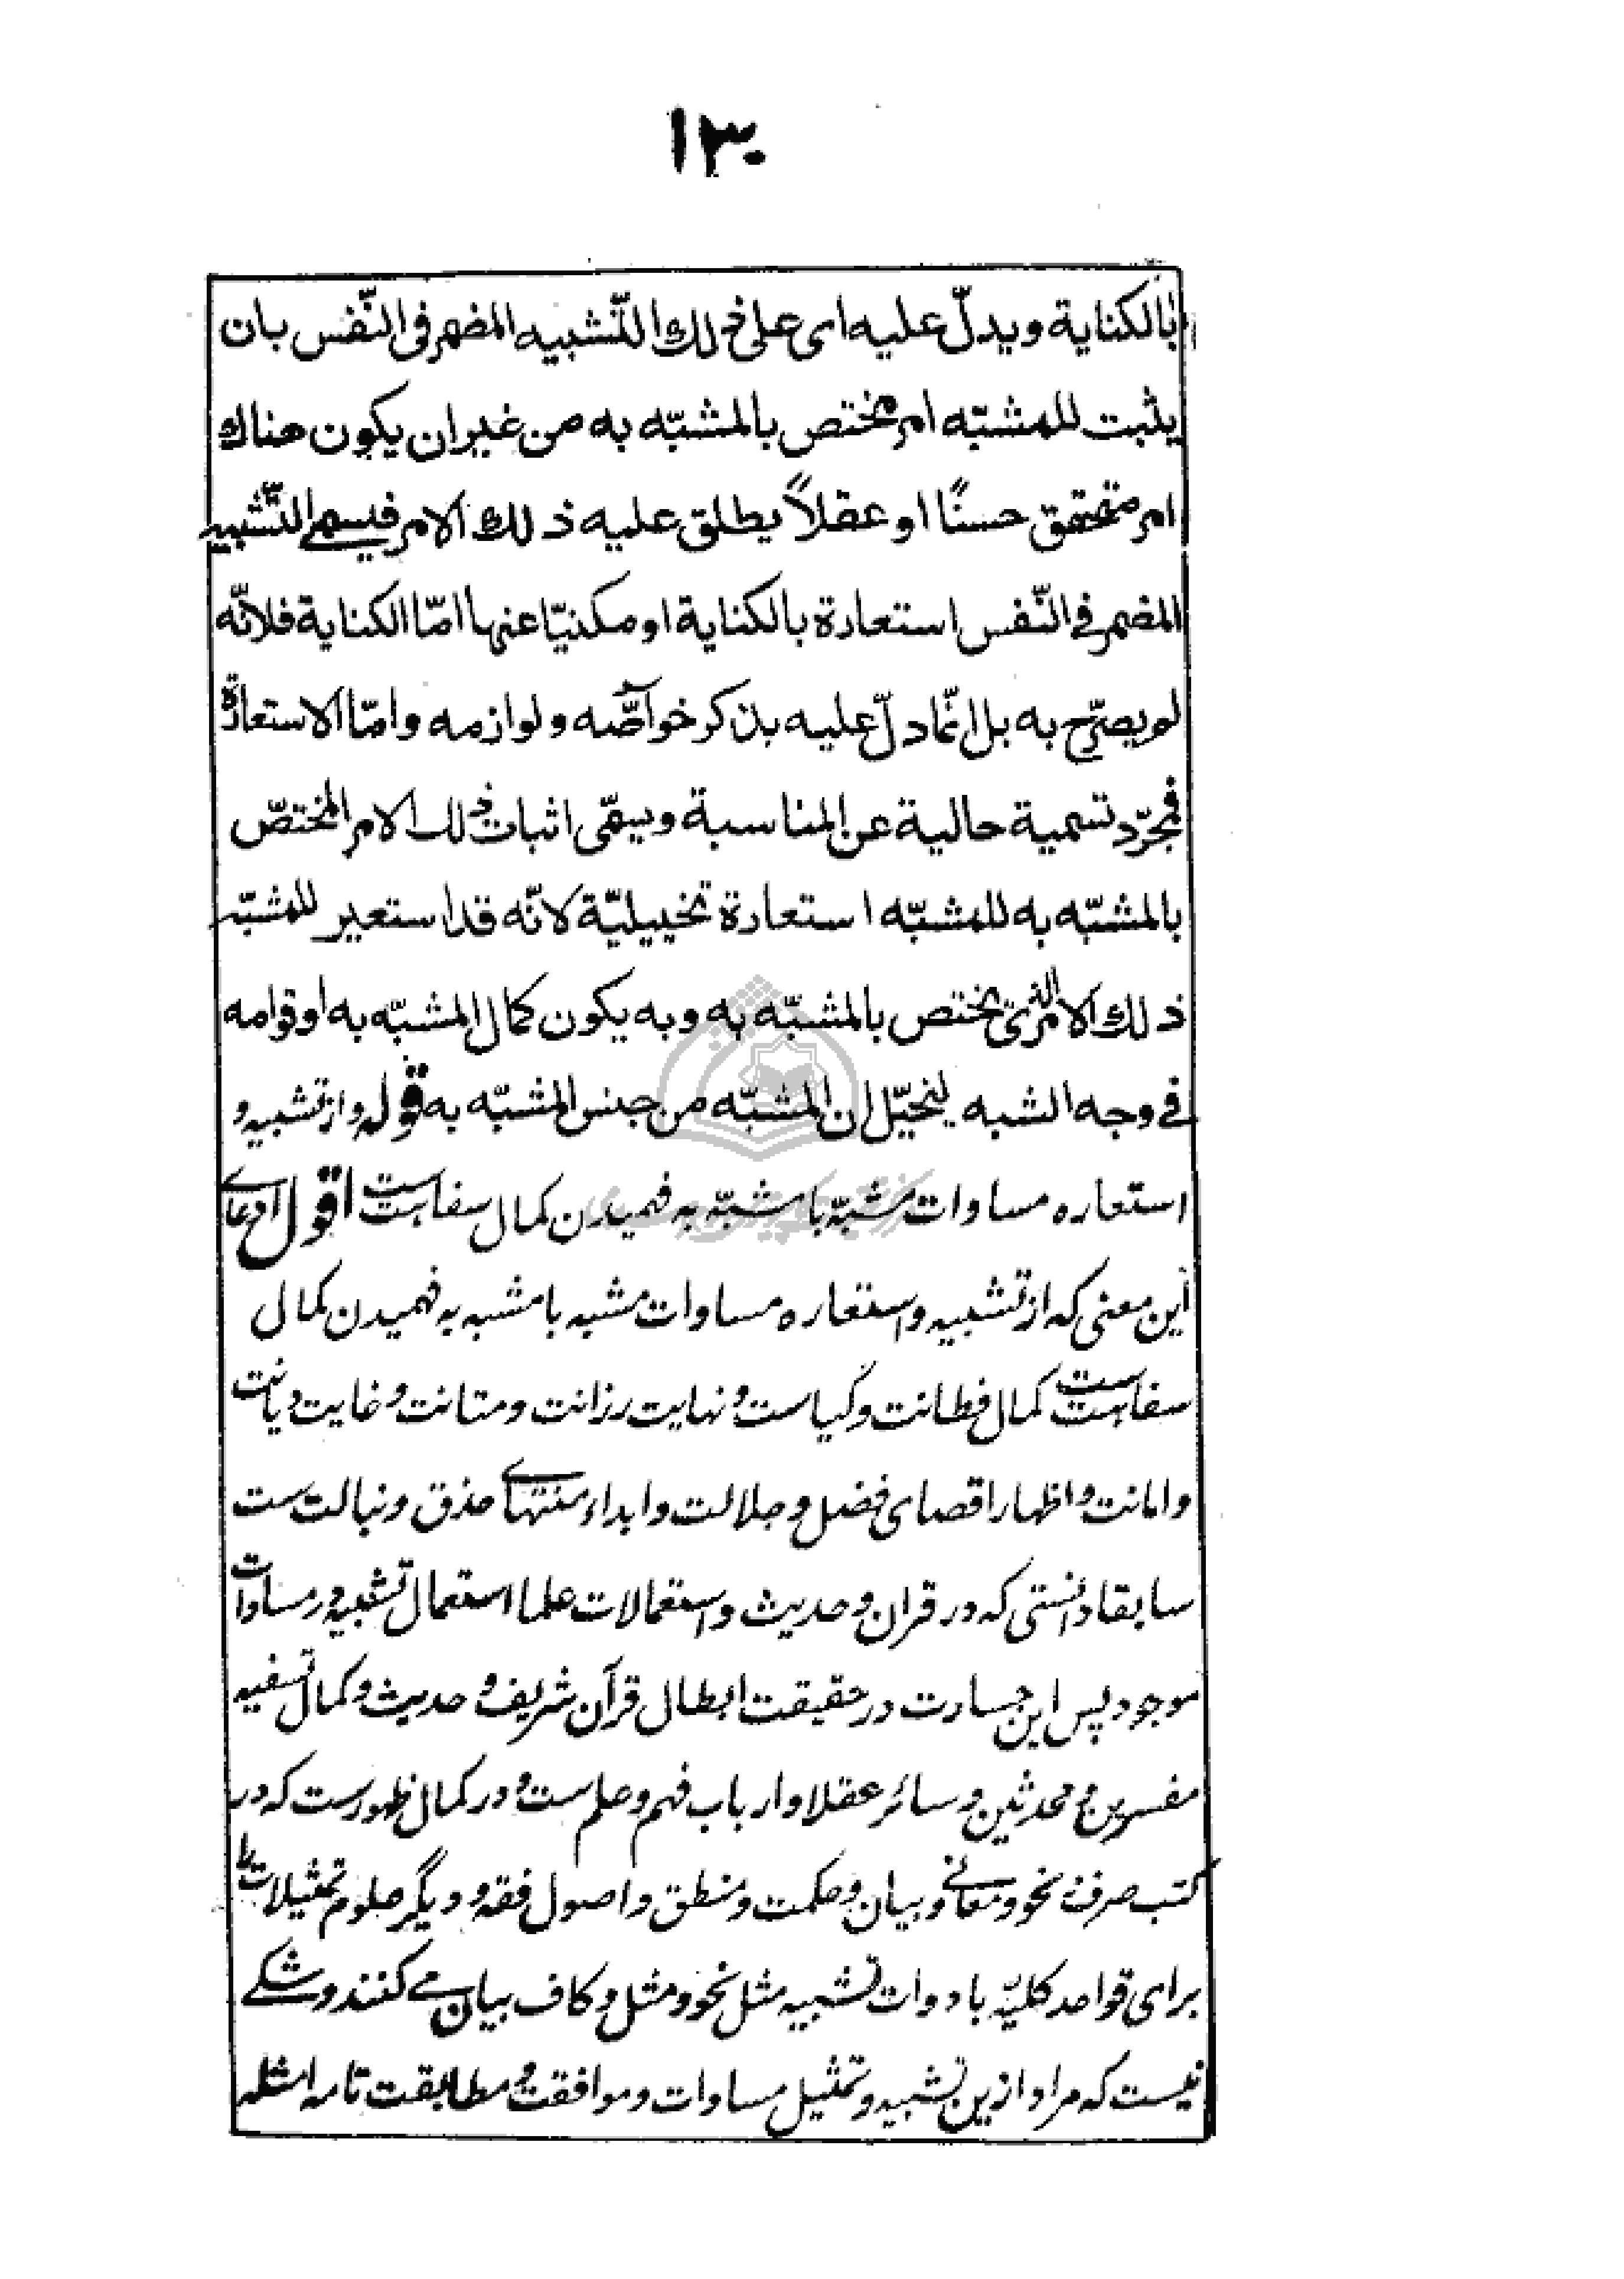 ١٣٠
بالكناية ويدلّ عليه اى على ذلك التّشبيه المضمر فى النّفس بان
يثبت للمشبّه امر مختص بالمشبّه به من غير ان يكون هناك
امر متحقق حسّنًا او عقلاً يطلق عليه ذلك الامر فيسمى التّشبيه
المضمر فى النّفس استعارة بالكناية او مكنيّا عنها امّا الكناية فلانّه
لم يصرّح به بل انّما دلّ عليه بذكر خواصّه ولوازمه وامّا الاستعارة
فمجرّد تسمية خالية عن المناسبة ويسمّى اثبات ذلك الامر المختصّ
بالمشبّه به للمشبّه استعارة تخييليّة لانّه قد استعير للمشبّه
ذلك الامر الذى يختص بالمشبّه به وبه يكون كمال المشبّه به او قوامه
فى وجه الشبه ليخيّل ان المشبّه من جنس المشبّه به قوله واز تشبيه و
استعاره مساوات مشبّه با مشبّه به فهميدن كمال سفاهت است اقول ادعاى
اين معنى كه از تشبيه و استعاره مساوات مشبه با مشبه به فهميدن كمال
سفاهت است كمال فطانت و كياست و نهايت رزانت و متانت و غايت ديانت
و امانت و اظهار اقصاى فضل و جلالت و ابداء منتهاى حذق و نبالت ست
سابقا دانستى كه در قران و حديث و استعمالات علما استعمال تشبيه در مساوات
موجود پس اين جسارت در حقيقت ابطال قرآن شريف و حديث و كمال تسفيه
مفسرين و محدثين و سائر عقلا و ارباب فهم و علم ست و در كمال ظهورست كه در
كتب صرف و نحو و معانى و بيان و حكمت و منطق و اصول فقه و ديگر علوم تمثيلات را
براى قواعد كليّه با دوات تشبيه مثل نحو و مثل و كاف بيان مى كنند و شكى
نيست كه مراد ازين تشبيه و تمثيل مساوات و موافقت و مطابقت تامه امثله